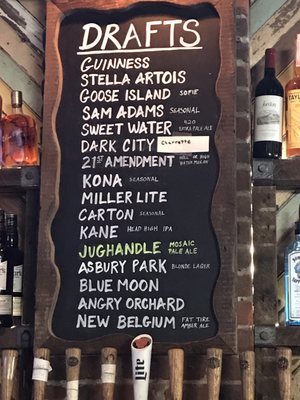 DRAFTS
GUINNESS
STELLA ARTOIS
GOOSE ISLAND SOFIE
SAM ADAMS SEASONAL
SWEET WATER 420 EXTRA PALE ALE
DARK CITY Charrette
21ST AMENDMENT HELL OR HIGH WATERMELON
KONA SEASONAL
MILLER LITE
CARTON SEASONAL
KANE HEAD HIGH IPA
JUGHANDLE MOSAIC PALE ALE
ASBURY PARK BLONDE LAGER
BLUE MOON
ANGRY ORCHARD
NEW BELGIUM FAT TIRE AMBER ALE
Lite